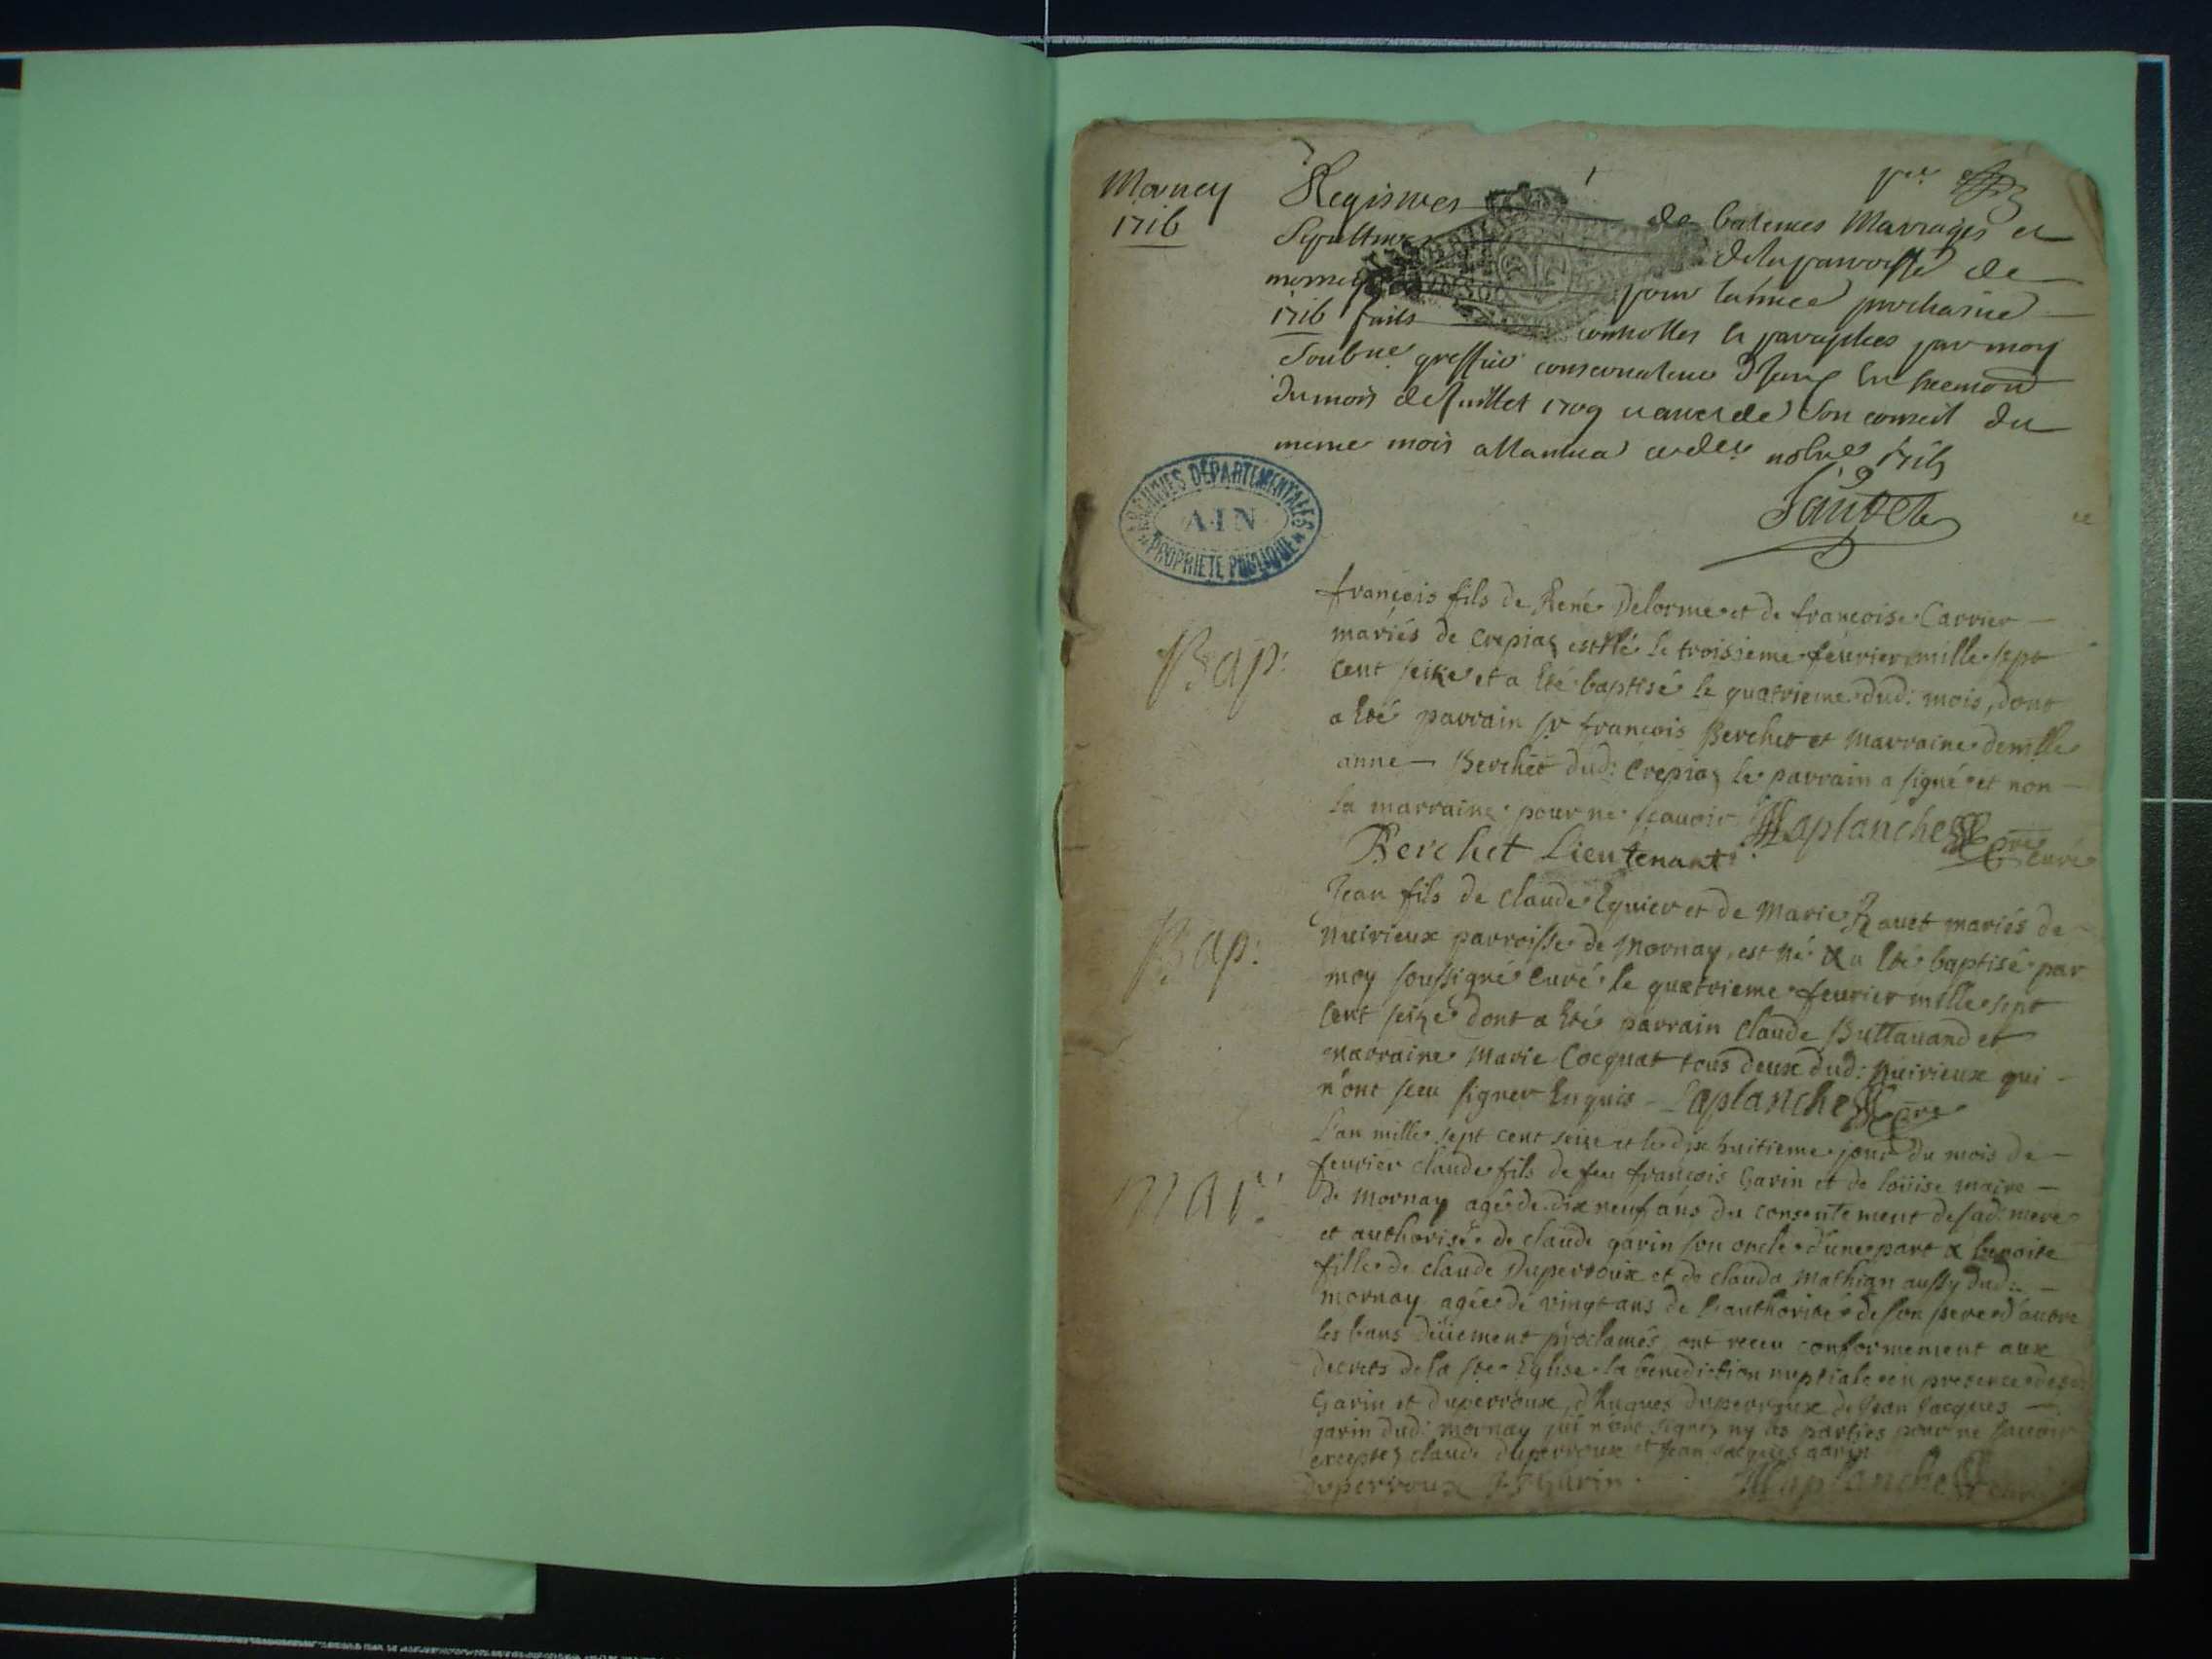 Mornay
1716
1
Registres de batemes Mariages et
Sepultures de la parroisse de
mornay pour lannee prochaine
1716 faits controlles & paraphes par moy
Soubne greffier conservateur
du mois de Juillet 1709 son conseil du
meme mois a Nantua
ARCHIVES DÉPARTEMENTALES
AIN
PROPRIÉTÉ PUBLIQUE
Bap:
françois fils de René Delorme et de françoise Carrier
mariés de Crepiaz est né le troisieme feuvrier mille sept
cent seize et a été baptisé le quatrieme dud: mois, dont
a été parrain sr françois Berchet et marraine demlle
anne Berchet dud: Crepiaz le parrain a signé et non
la marraine pour ne scauoir Laplanche pre curé
Berchet Lieutenant
Bap:
Jean fils de claude Eguier et de Marie Rauet mariés de
Nuirieux parroisse de Mornay, est né & a été baptisé par
moy soussigné Curé le quatrieme feurier mille sept
cent seize dont a été parrain claude Buttauand et
marraine Marie Cocquat tous deux dud: Nuirieux qui
n'ont sceu signer Enquis Laplanche pre
Mar:
L'an mille sept cent seize et le dix huitieme jour du mois de
feurier claude fils de feu françois Garin et de loüise maire
de Mornay agé de dix neuf ans du consentement de sad: mere
et authorisé de claude garin son oncle d'une part & benoite
fille de claude Duperroux et de clauda Mathian aussy dud:
mornay agée de vingt ans de l'authorité de son pere d'autre
les bans düement proclamés ont receu conformement aux
decrets de la ste Eglise la benediction nuptiale en presence des
Garin et duperroux, d'hugues duperroux de Jean Jacques
garin dud: mornay qui n'ont signez ny les parties pour ne scauoir
exceptez claude duperroux et Jean Jacques garin
Duperroux JJ Garin Laplanche curé